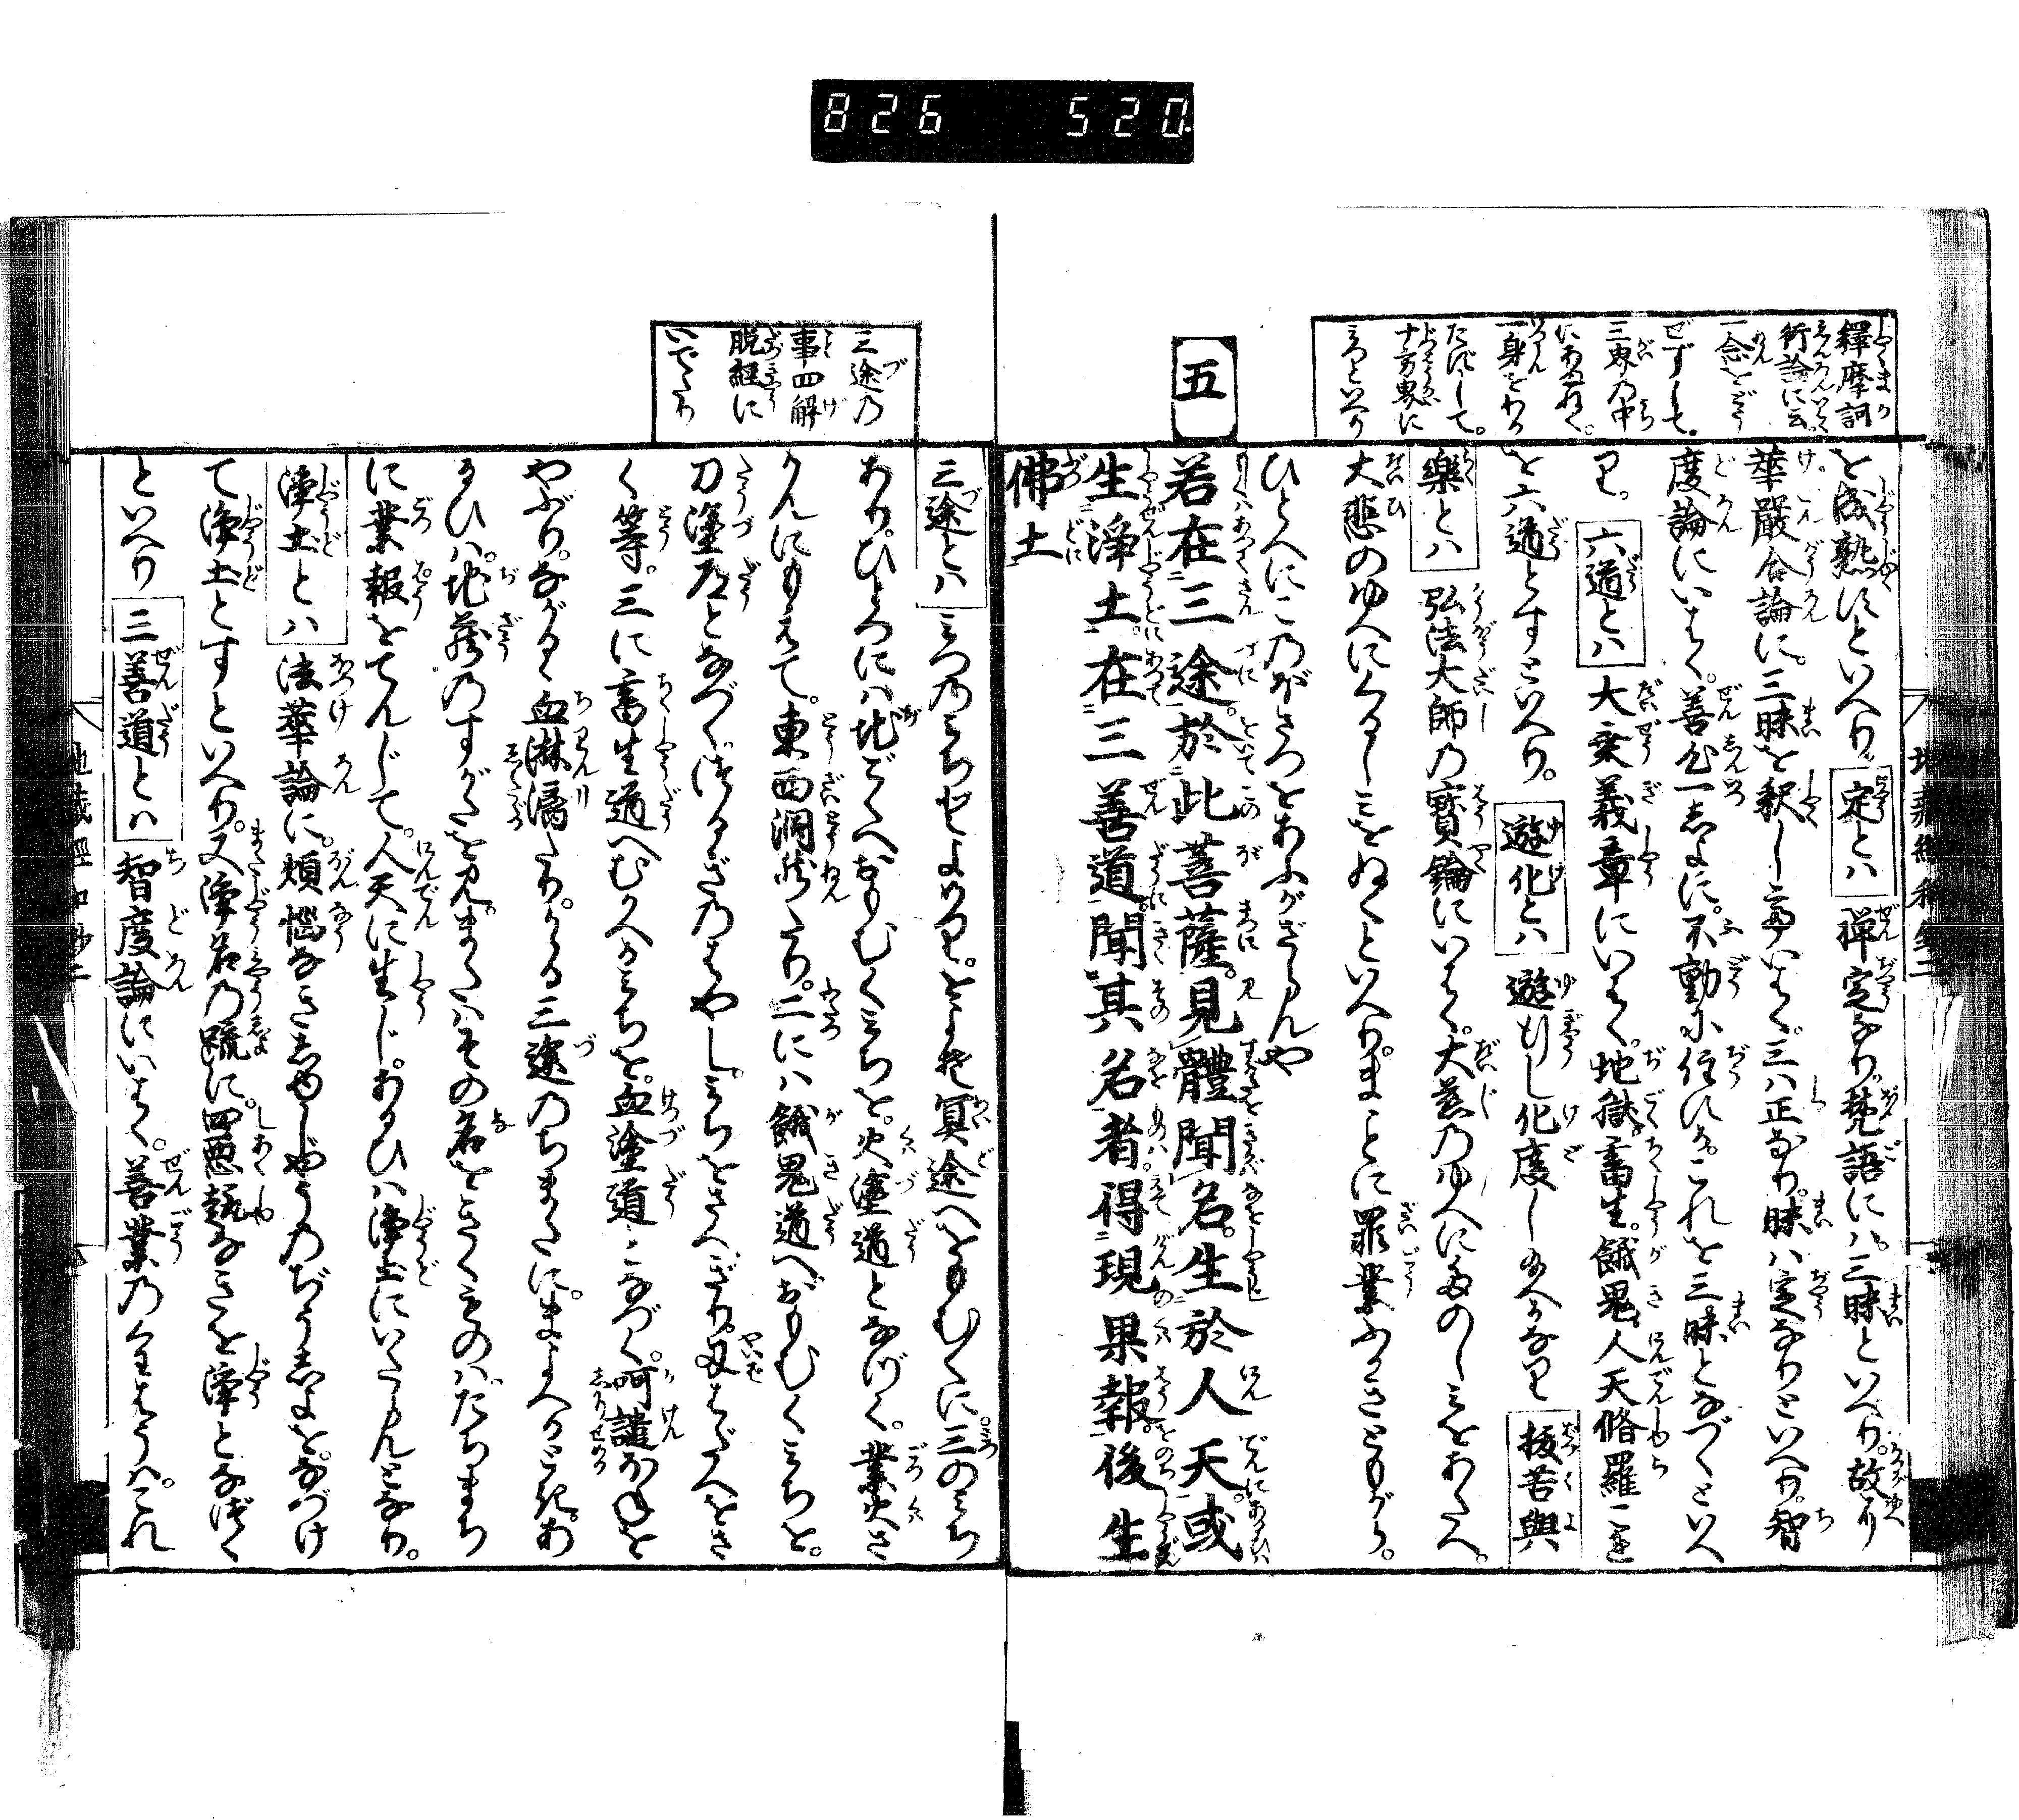 826 520
釋摩訶
衍論に云
一念をどう
ぜずして。
三界の中
にあまねく。
一身をわか
たずして。
十方界に
みつといへり
を成熟すといへり 定とハ 禅定なり。梵語にハ。三昧といへり。故に
華嚴合論に。三昧を釈していはく。三ハ正なり。昧ハ定なりといへり。智
度論にいはく。善心一しよに。不動に住する。これを三昧となづくといへ
り。 六道とハ 大乗義章にいはく。地獄。畜生。餓鬼。人天脩羅これ
を六道とすといへり。 遊化とハ 遊行し化度し給へるなり 抜苦與
樂とハ 弘法大師の寳鑰にいはく。大慈のゆへにたのしミをあたへ。
大悲のゆへにくるしミをぬくといへり。まことに罪業ふかきともがら。
ひとへにこのぼさつをあふがざらんや
五
若在三途。於此菩薩。見體聞名。生於人天。或
生淨土。在三善道。聞其名者。得現果報。後生
佛土
三途の
事四解
脱經に
いでたり
三途とハ みつのミちぜよめり。をよそ冥途へをもむくに。三のミち
あり。ひとつにハ地ごくへおもむくミちを。火塗道となづく。業火さ
かんにもえて。東西洞然たり。二にハ餓鬼道へおもむくミちを。
刀塗道となづく。つるぎのはやし。ミちをさへぎり。刄はだへをさ
く等。三に畜生道へむかへるミちを。血塗道となづく。呵譴ほねを
やぶり。ながるゝ血淋漓たり。かゝる三途のちまたに。まよへるとき。あ
るひハ。地蔵のすがたを見。またハその名をきくものハ。たちまち
に業報をてんじて。人天に生じ。あるひハ浄土にいたらんとなり。
淨土とハ 法華論に。煩悩なきしゆじやうのぢうしよを。なづけ
て浄土とすといへり。又浄名の䟽に。四悪趣なきを浄となづく
といへり 三善道とハ 智度論にいはく。善業の人をはうハ。これ